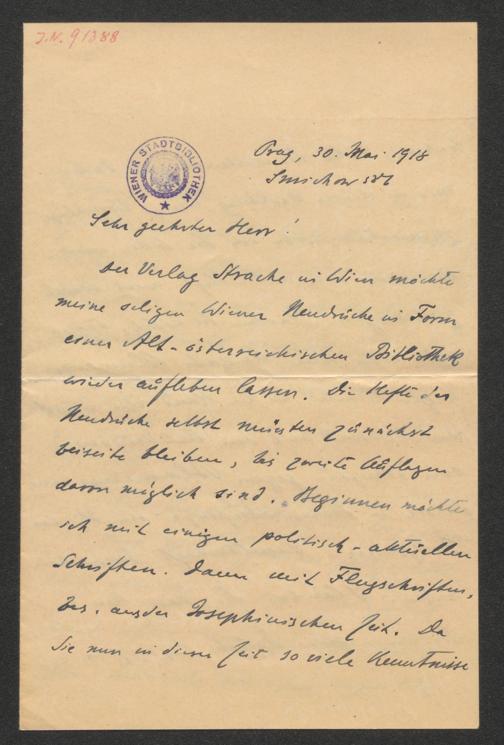 J.N. 91388
WIENER STADTBIBLIOTHEK
Prag, 30. Mai 1918
Smichow 586
Sehr geehrter Herr!
Der Verlag Strache in Wien möchte
meine seligen Wiener Neudrücke in Form
einer Alt-österreichischen Bibliothek
wieder aufleben lassen. Die Hefte der
Neudrücke selbst müssten zunächst
beiseite bleiben, bis zweite Auflagen
davon möglich sind. Beginnen möchte
ich mit einigen politisch-aktuellen
Schriften. Dann mit Flugschriften,
bes. aus der Josephinischen Zeit. Da
Sie nun in dieser Zeit so viele Kenntnisse